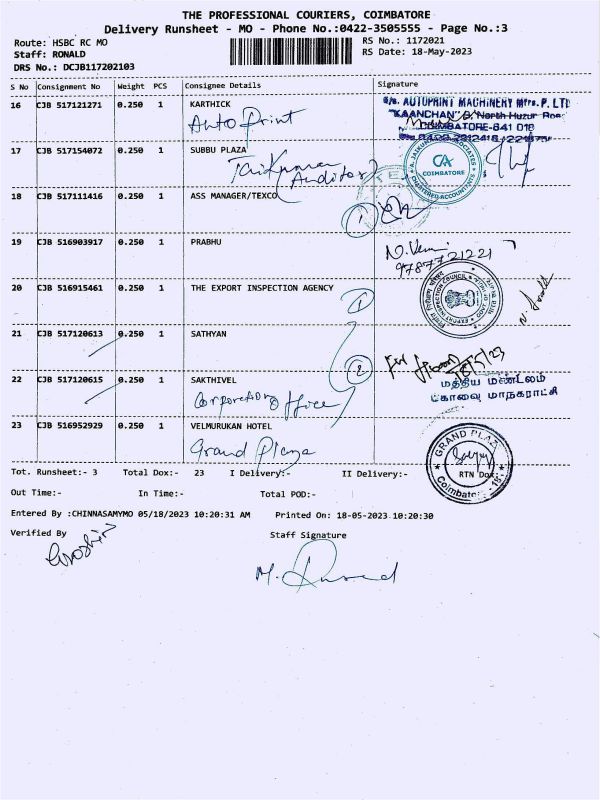 THE PROFESSIONAL COURIERS, COIMBATORE
Delivery Runsheet - MO - Phone No.:0422-3505555 - Page No.:3
Route: HSBC RC MO
Staff: RONALD
DRS No.: DCJB117202103
RS No.: 1172021
RS Date: 18-May-2023
S No Consignment No Weight PCS Consignee Details Signature
16 CJB 517121271 0.250 1 KARTHICK
Auto Print
AUTOPRINT MACHINERY Mfrs. P. LTD
"KAANCHAN" 9, North Huzur Road
COIMBATORE-641 018
17 CJB 517154072 0.250 1 SUBBU PLAZA
Jaikumar
(Auditor)
CA
COIMBATORE
CHARTERED ACCOUNTANTS
18 CJB 517111416 0.250 1 ASS MANAGER/TEXCO
1
19 CJB 516903917 0.250 1 PRABHU
9787721221
20 CJB 516915461 0.250 1 THE EXPORT INSPECTION AGENCY
1
21 CJB 517120613 0.250 1 SATHYAN
2
18/5/23
22 CJB 517120615 0.250 1 SAKTHIVEL
Corporation Office
மத்திய மண்டலம்
கோவை மாநகராட்சி
23 CJB 516952929 0.250 1 VELMURUKAN HOTEL
Grand Plaza
GRAND PLAZ
Coimbat
Tot. Runsheet:- 3 Total Dox:- 23 I Delivery:- II Delivery:- RTN Dox:
Out Time:- In Time:- Total POD:-
Entered By :CHINNASAMYMO 05/18/2023 10:20:31 AM Printed On: 18-05-2023 10:20:30
Verified By Staff Signature